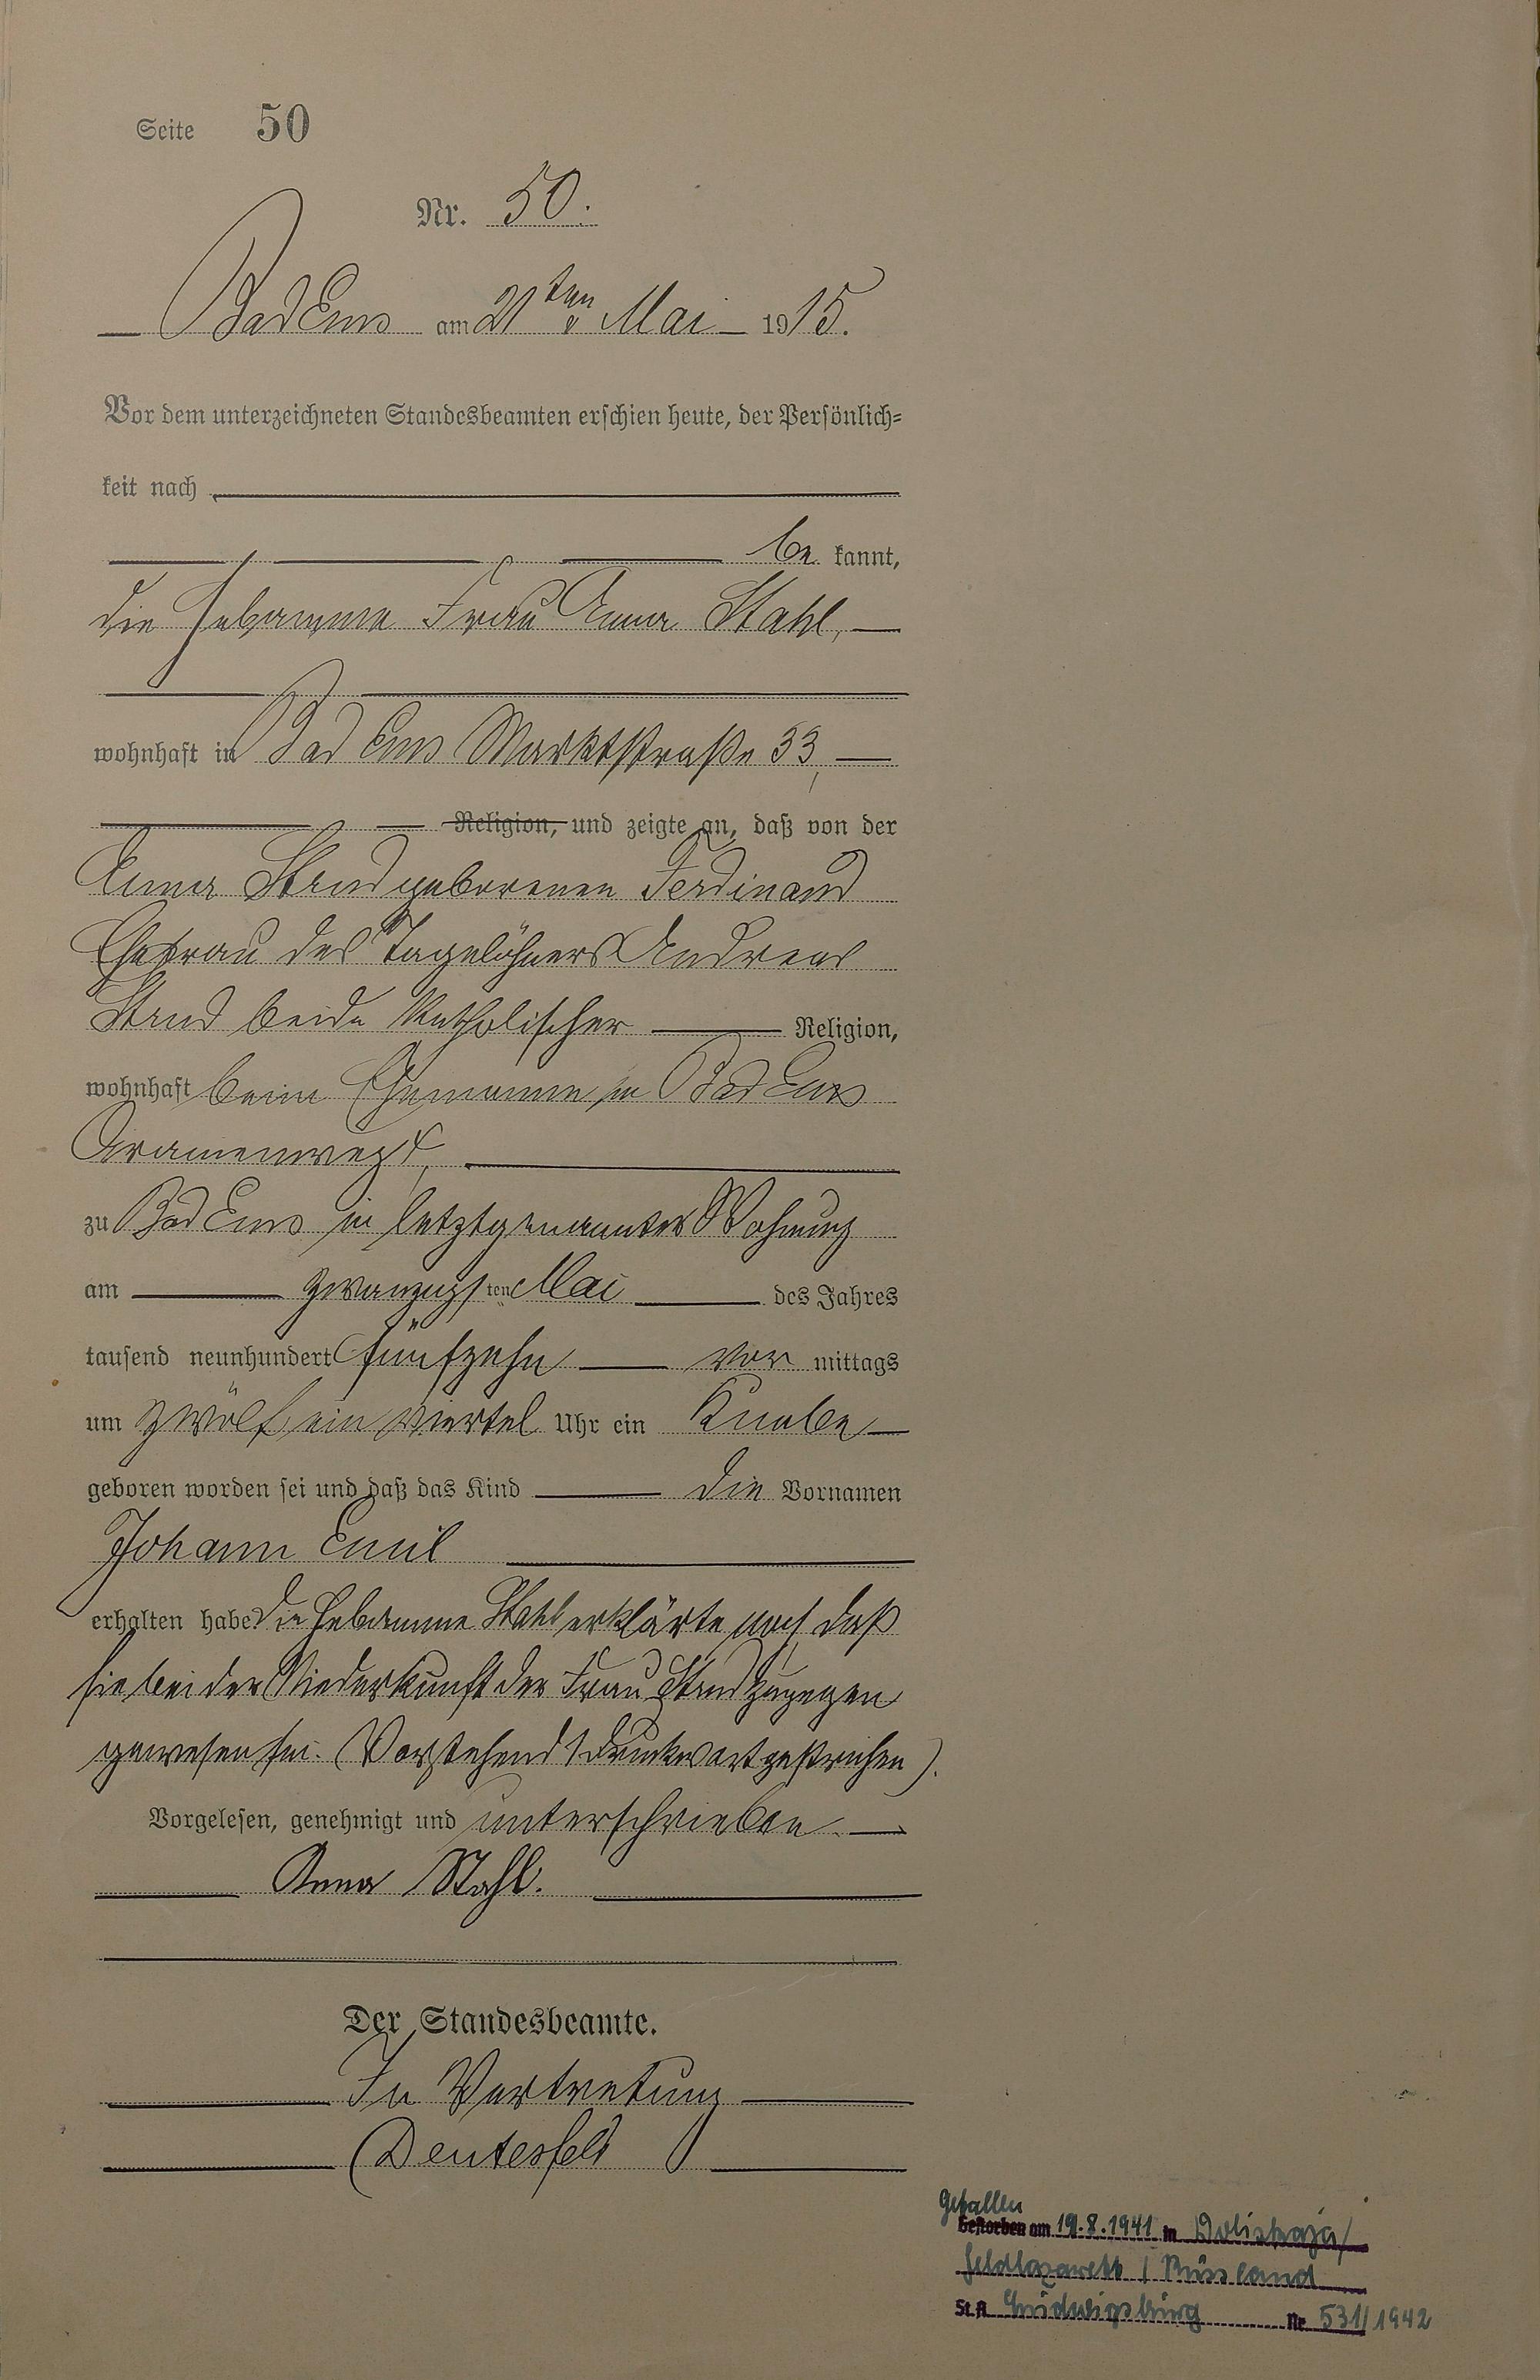 Seite 50
Nr. 50.
Bad Ems am 21ten Mai 1915.
Vor dem unterzeichneten Standesbeamten erschien heute, der Persönlich=
keit nach
be kannt,
die Hebamme Frau Anna Stahl,
wohnhaft in Bad Ems Marktstraße 33,
Religion, und zeigte an, daß von der
Anna geborenen Ferdinand
Ehefrau des Tagelöhners Andreas
beide katholischer Religion,
wohnhaft beim Ehemanne in Bad Ems
zu Bad Ems in letztgenannter Wohnung
am zwanzigsten Mai des Jahres
tausend neunhundert fünfzehn vor mittags
um zwölf ein viertel Uhr ein Knabe
geboren worden sei und daß das Kind die Vornamen
Johann Emil
erhalten habe. Die Hebamme Stahl erklärte noch, daß
sie bei der Niederkunft der Frau zugegen
gewesen sei. (Vorstehend 1 Druckwort gestrichen).
Vorgelesen, genehmigt und unterschrieben.
Anna Stahl.
Der Standesbeamte.
In Vertretung
Deutesfeld
Gefallen
Gestorben am 19.8.1941 in
Feldlazarett / Russland
St.A Ludwigsburg Nr. 531/1942